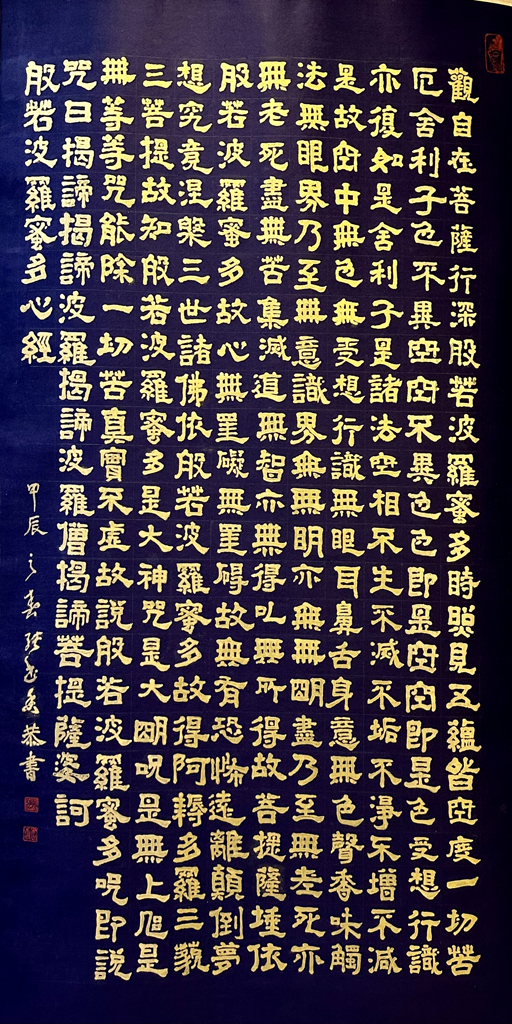 觀自在菩薩行深般若波羅蜜多時照見五蘊皆空度一切苦
厄舍利子色不異空空不異色色即是空空即是色受想行識
亦復如是舍利子是諸法空相不生不滅不垢不淨不增不減
是故空中無色無受想行識無眼耳鼻舌身意無色聲香味觸
法無眼界乃至無意識界無無明亦無無明盡乃至無老死亦
無老死盡無苦集滅道無智亦無得以無所得故菩提薩埵依
般若波羅蜜多故心無罣礙無罣碍故無有恐怖遠離顛倒夢
想究竟涅槃三世諸佛依般若波羅蜜多故得阿耨多羅三藐
三菩提故知般若波羅蜜多是大神咒是大明呪是無上咒是
無等等咒能除一切苦真實不虛故說般若波羅蜜多呪即說
咒曰揭諦揭諦波羅揭諦波羅僧揭諦菩提薩婆訶
般若波羅蜜多心經
甲辰之春恭書